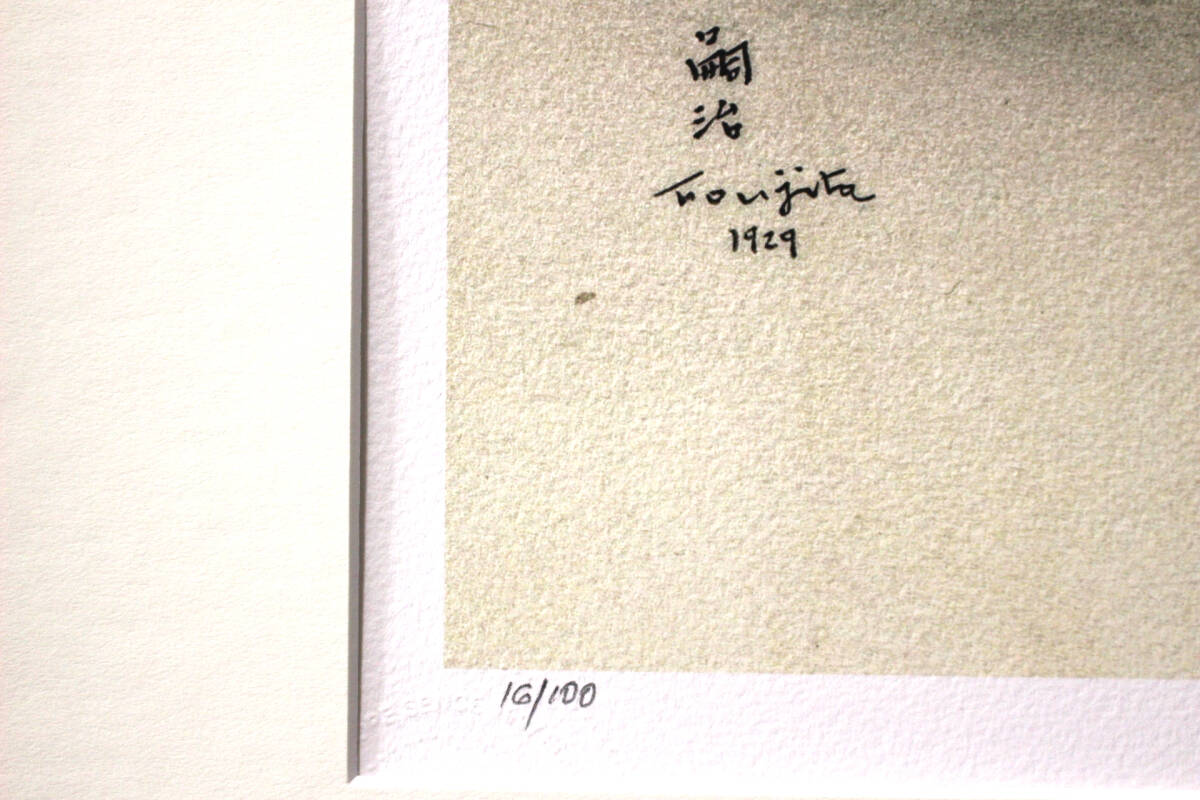 嗣
治
Foujita
1929
16/100